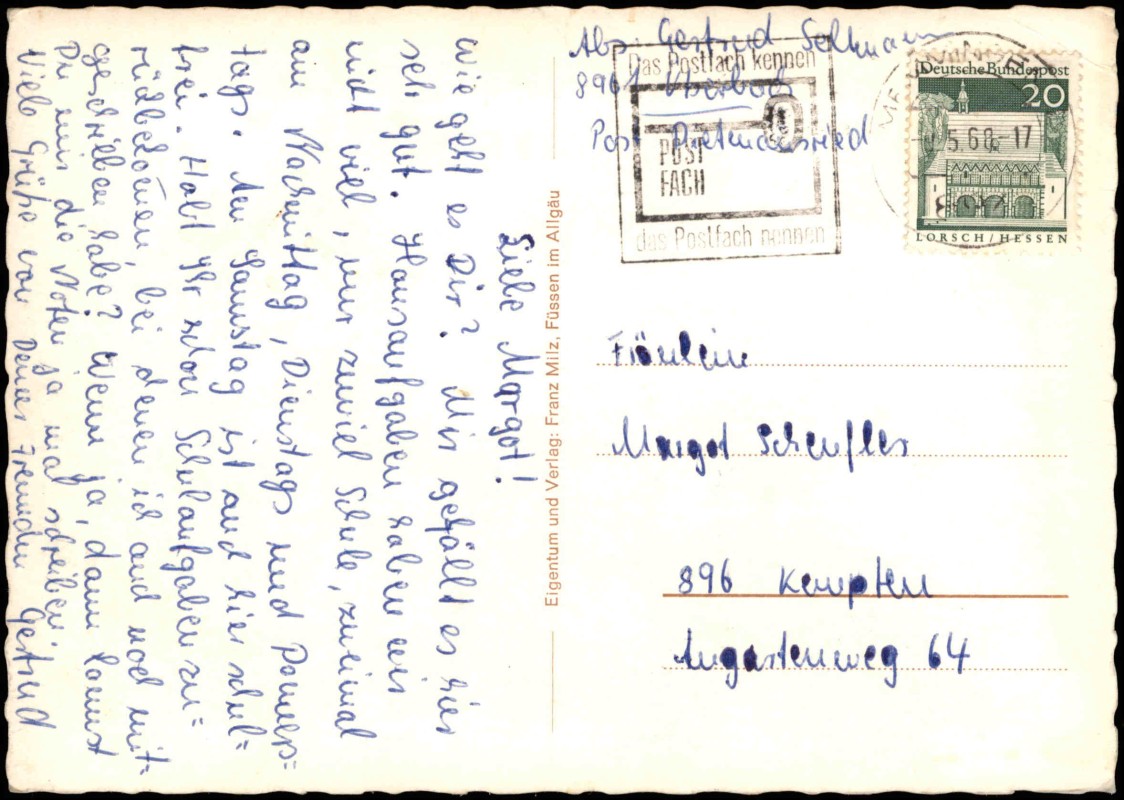 Liebe Margot!
wie geht es Dir? Mir gefällt es hier
sehr gut. Hausaufgaben haben wir
nicht viel, nur zuviel Schule, zweimal
am Nachmittag, Dienstags und Donners=
tags. Am Samstag ist auch hier schul=
frei. Habt Ihr schon Schulaufgaben zu=
rückbekommen, bei denen ich auch noch mit-
geschrieben habe? Wenn ja, dann kannst
Du mir die Noten ja mal schreiben.
Viele Grüße von Deiner Freundin Gertrud
Eigentum und Verlag: Franz Milz, Füssen im Allgäu
Abs. Gertrud
8961
Post
Das Postfach kennen
POST
FACH
das Postfach nennen
Deutsche Bundespost
20
5.6.68-17
LORSCH/HESSEN
Fräulein
Margot Scheufler
896 Kempten
Augartenweg 64